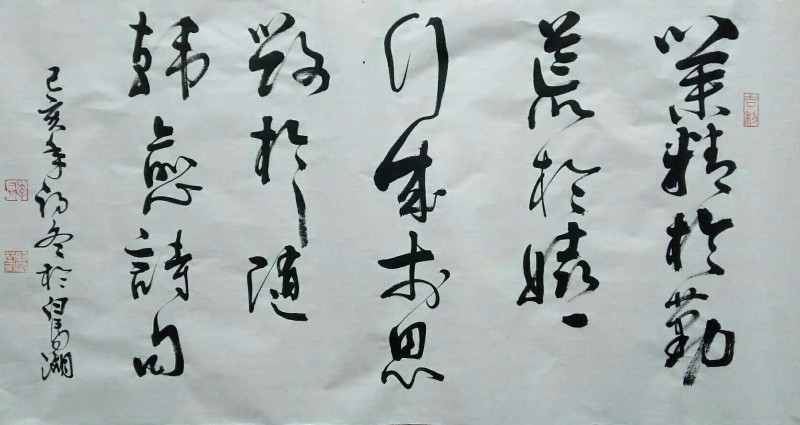 業精於勤
荒於嬉
行成於思
毁於随
韓愈詩句
己亥年初冬於白馬湖